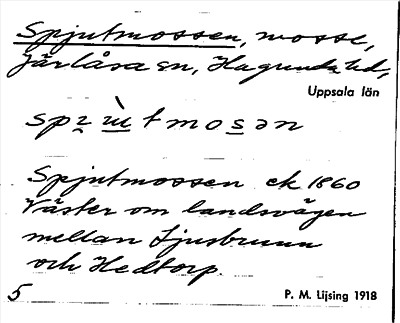 Spjutmossen, mosse,
Järlåsa sn, Hagunda hd,
Uppsala län
Spjutmossen ek 1860
Väster om landsvägen
mellan Ljusbrunn
och Hedtorp.
5 P. M. Lijsing 1918